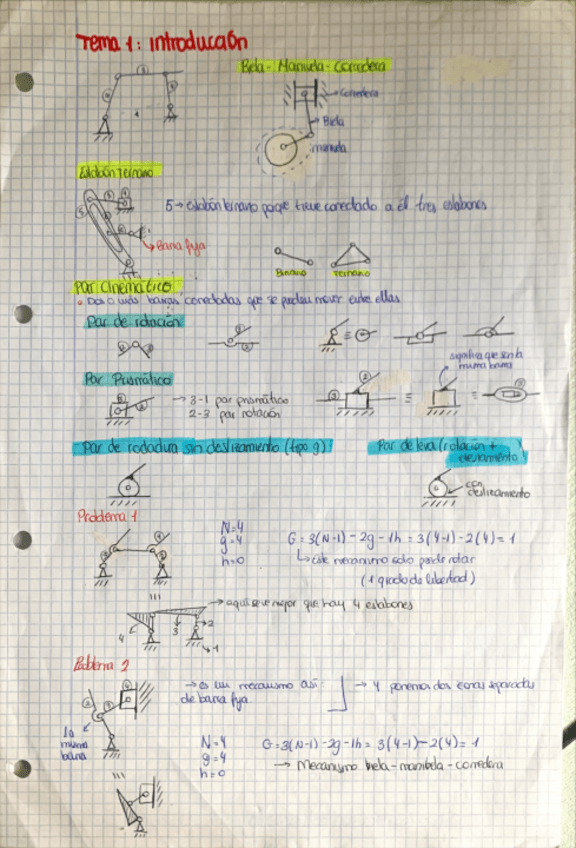 Tema 1: introducción
Biela- Manivela- Corredera
→ Corredera
→ Biela
manivela
Eslabón Ternario
5 → eslabón ternario porque tiene conectado a él tres eslabones
→ Barra fija
Binario Ternario
Par Cinemático:
• Dos o más barras conectadas que se pueden mover entre ellas
Par de rotación
significa que son la
misma barra
Par Prismático
→ 3-1 par prismático
2-3 par rotación
Par de rodadura sin deslizamiento (tipo g)
Par de leva (rotación +
deslizamiento)
con
deslizamiento
Problema 1
N=4
g=4
h=0
G = 3(N-1) - 2g - 1h = 3(4-1) - 2(4) = 1
↳ este mecanismo solo puede rotar
(1 grado de libertad)
→ aquí se ve mejor que hay 4 eslabones
4 3 2
1
Problema 2
→ es un mecanismo así
de barra fija
→ y ponemos dos zonas separadas
la
misma
barra
N=4
g=4
h=0
G=3(N-1) -2g -1h = 3(4-1) - 2(4) = 1
→ Mecanismo biela-manivela-corredera